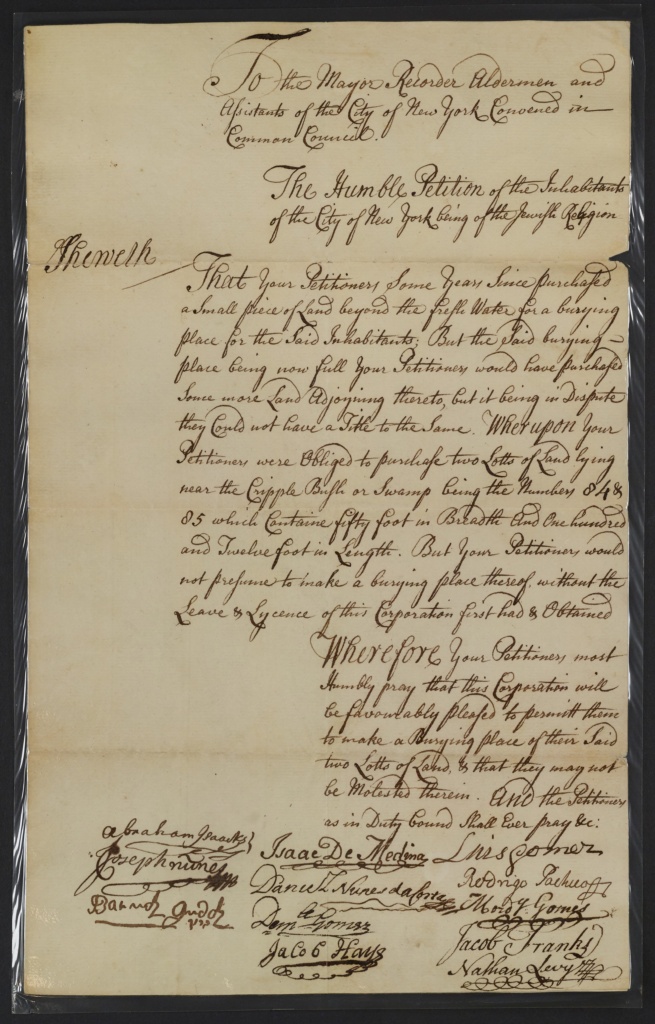 To the Mayor Recorder Aldermen and
Assistants of the City of New York Convened in
Common Council.
The Humble Petition of the Inhabitants
of the City of New York being of the Jewish Religion
Sheweth
That Your Petitioners Some Years Since purchased
a Small piece of Land beyond the fresh Water for a burying
place for the Said Inhabitants: But the Said burying-
place being now full Your Petitioners would have purchased
Some more Land Adjoyning thereto, but it being in Dispute
they Could not have a Title to the Same. Wherupon Your
Petitioners were Obliged to purchase two Lotts of Land lying
near the Cripple Bush or Swamp being the Numbers 84 &
85 which Containe fifty foot in Breadth And One hundred
and Twelve foot in Length. But Your Petitioners would
not presume to make a burying place thereof without the
Leave & Lycence of this Corporation first had & Obtained
Wherefore Your Petitioners most
Humbly pray that this Corporation will
be favourably pleased to permitt them
to make a Burying place of their Said
two Lotts of Land, & that they may not
be Molested therein. And the Petitioners
as in Duty bound Shall Ever pray &c:
Abraham Isaacks
Joseph nunes
Baruch Judah
Isaac De Medina
Daniel Nunes dacosta
Gomez
Jacob Hays
Luis gomez
Rodrigo Pacheco
Mord. Gomez
Jacob Franks
Nathan Levy